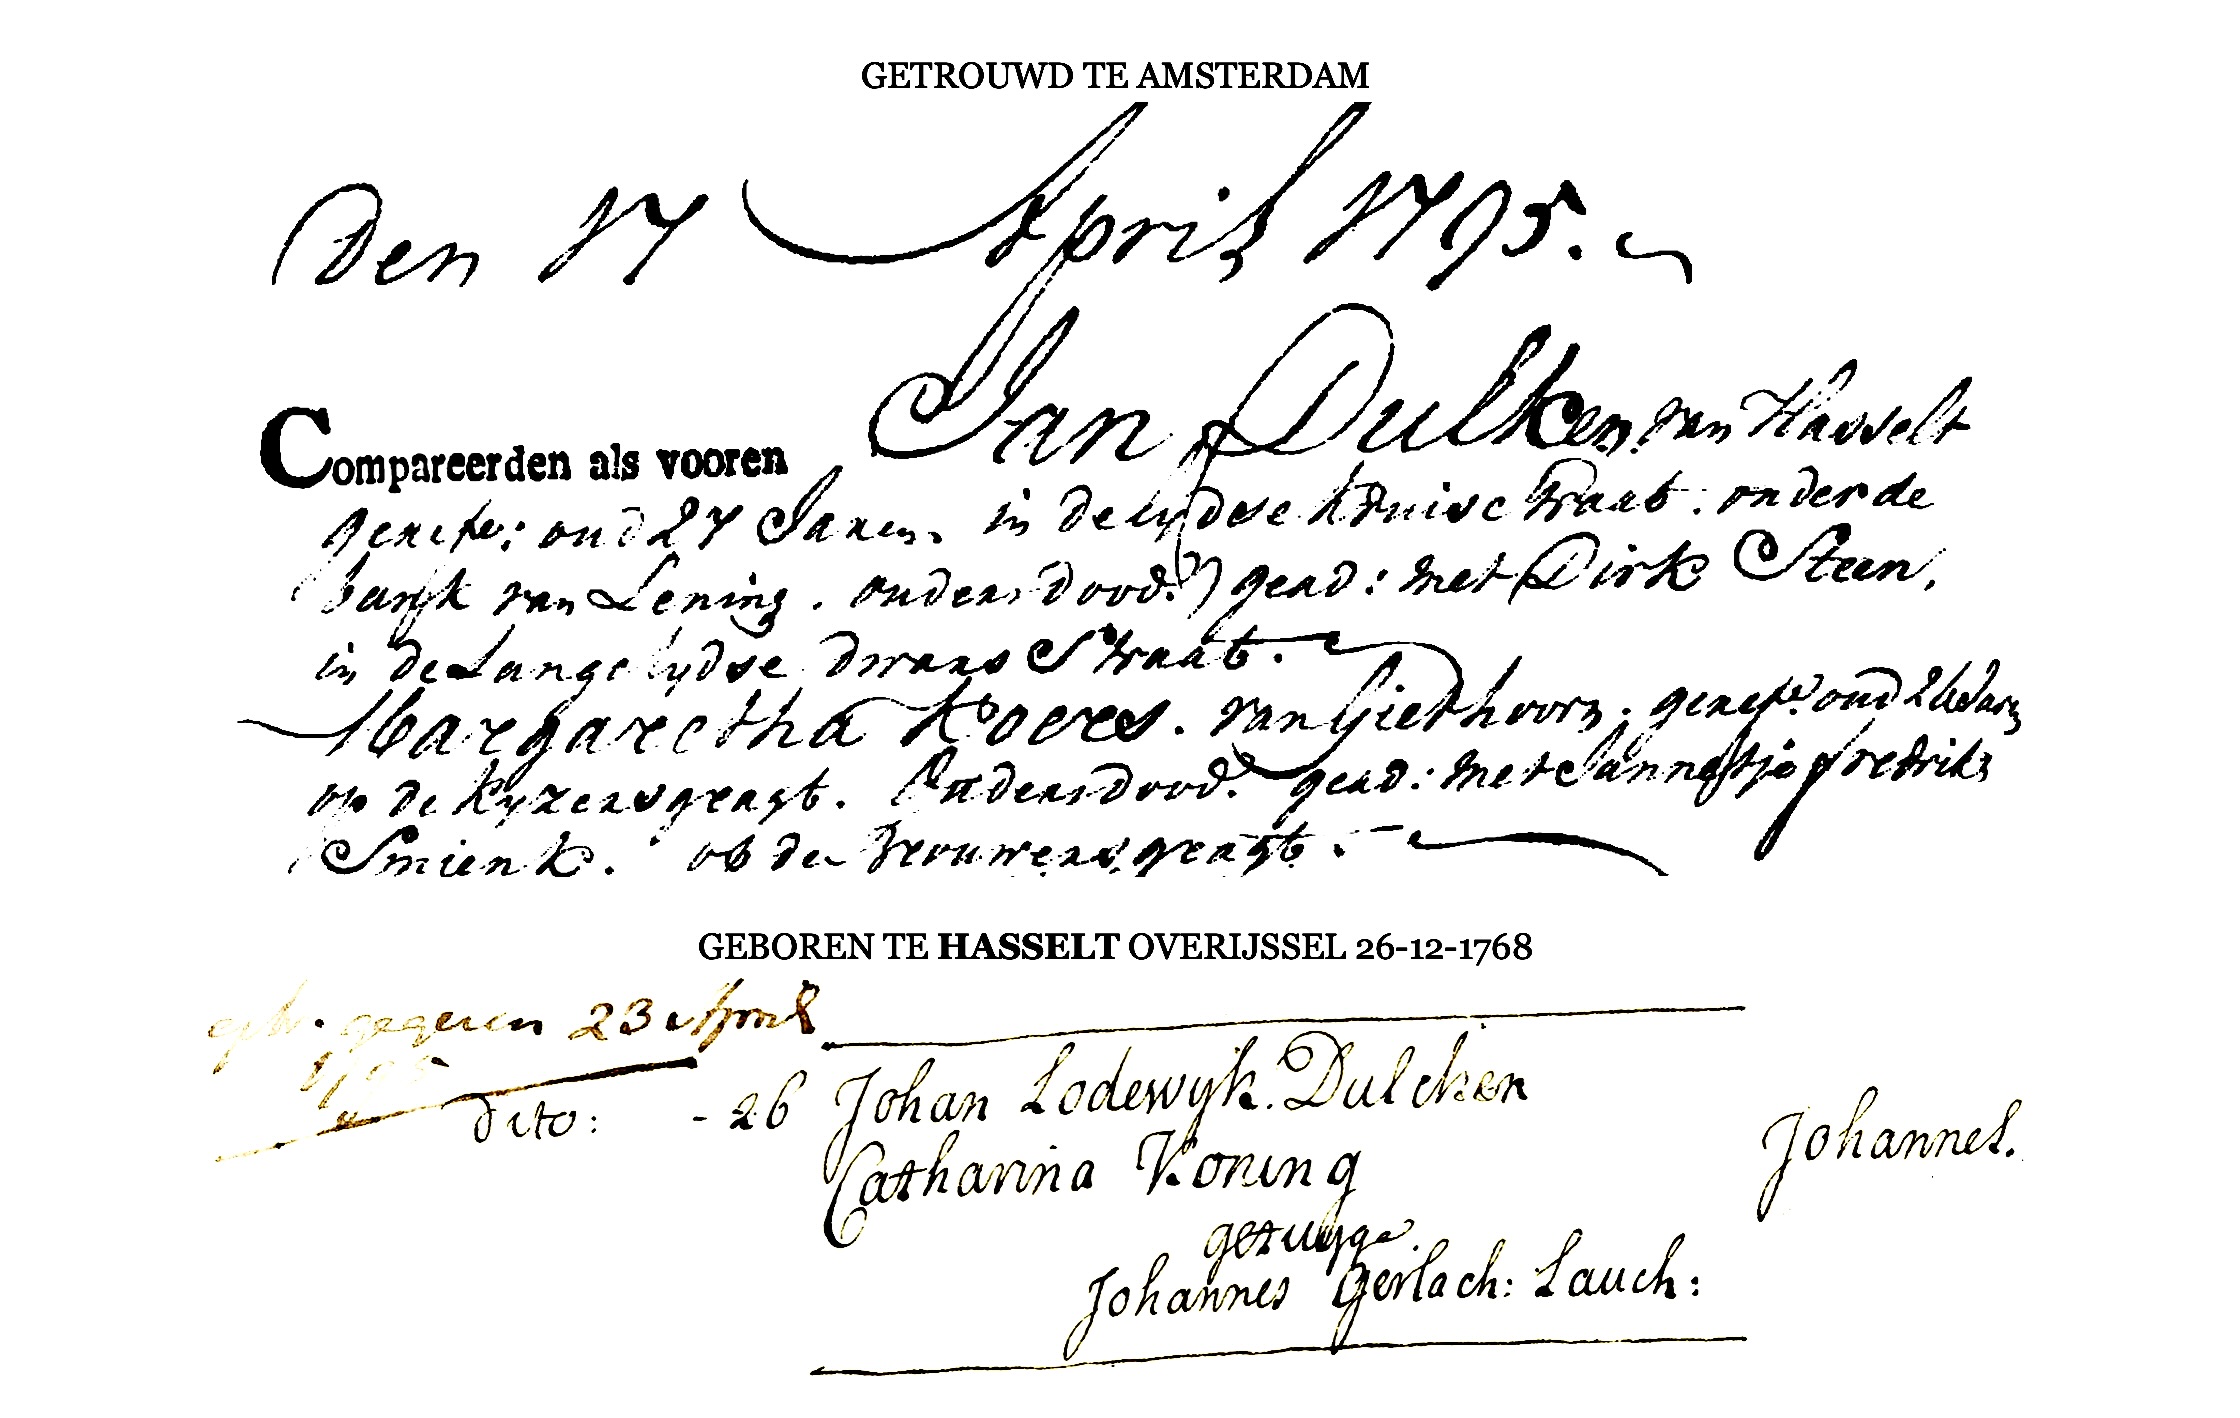 GETROUWD TE AMSTERDAM
Den 17 April 1795.
Compareerden als vooren Jan Dulken van Hasselt
geref: oud 27 Jaren, in de lydse kruisstraat. onder de
bank van Lening. ouders dood. gead: met Dirk Steen,
in de Lange lydse dwars Straat.
Margaretha Koers. van Giethoorn. geref: oud 26 Jaren
op de Kyzersgragt. Ouders dood. gead: met Jannetje fredriks
Smienk. op de Brouwersgragt.
GEBOREN TE HASSELT OVERIJSSEL 26-12-1768
gegeven 23 April
1795
dito: - 26 Johan Lodewyk. Dulcken Johannes.
Catharina Koning
getuyge
Johannes Gerlach: Lauch: